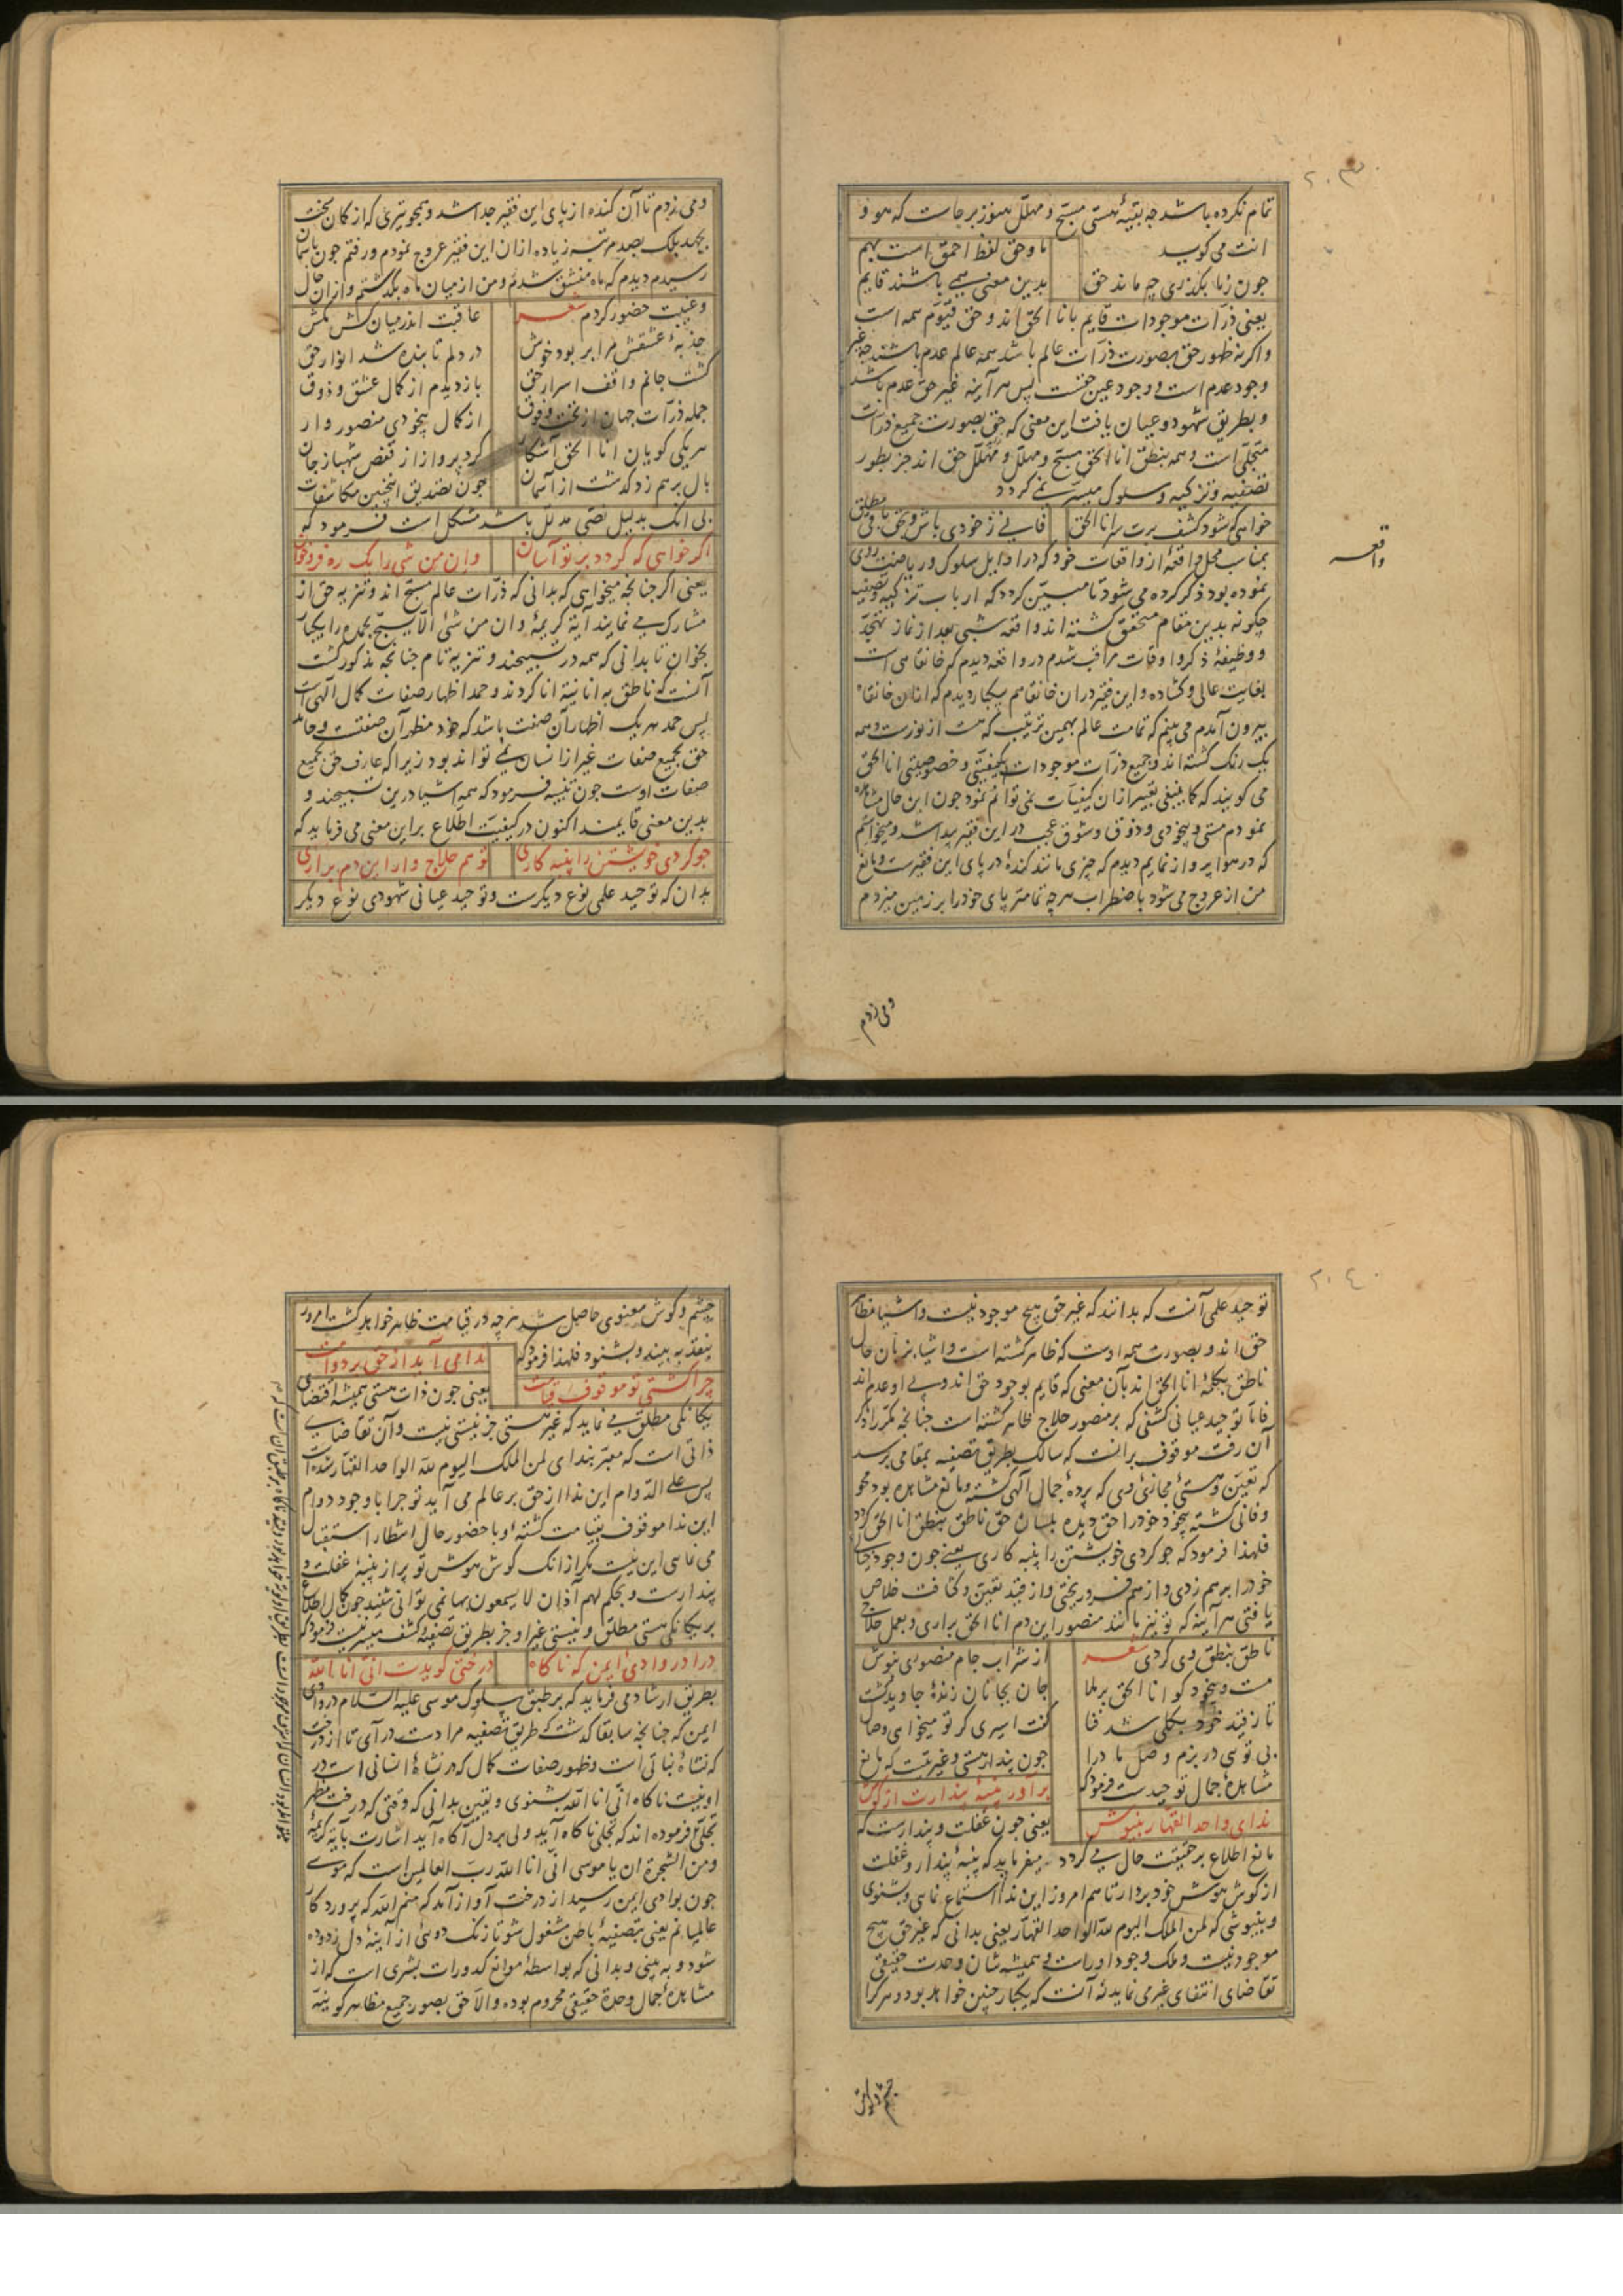 ۲۰۳
تمام نکرده باشد چه بقیهٔ هستی مسبح و مهلل هنوز برجاست که هو و
انت می کوید
ما و حق لفظ احمق است بهم
جون زما بکذری چه ماند حق
بدین معنی همی باشند قایم
یعنی ذرات موجودات قایم بانا الحق اند و حق قیوم همه است
و اکر نه ظهور حق بصورت ذرات عالم باشد همه عالم عدم باشند چه غیر
وجود عدم است و وجود عین حقست پس هر آینه غیر حق عدم باشد
و بطریق شهود و عیان یافت این معنی که حق بصورت جمیع ذرات
متجلی است و همه بنطق انا الحق مسبح و مهلل و مهلل حق اند جز بطور
تصفیه و تزکیه و سلوک میسر نمی کردد
خواهی که شود کشف برت سر انا الحق
فانی ز خودی باش و بحق باقی مطلق
واقعه
بمناسب محل واقعهٔ از واقعات خود که در اوایل سلوک و ریاضت روی
نموده بود ذکر کرده می شود تا مبین کردد که ارباب تزکیه و تصفیه
چکونه بدین مقام متحقق کشته اند واقعه شبی بعد از نماز تهجد
و وظیفهٔ ذکر و اوقات مراقب شدم در واقعه دیدم که خانقاهی است
بغایت عالی و کشاده و این فقیر در ان خانقاهم بیکبار دیدم که از ان خانقاه
بیرون آمدم می بینم که تمامت عالم بهمین ترتیب که هست از نورست و همه
یک رنک کشته اند و جمیع ذرات موجودات بکیفیتی و خصوصیتی انا الحق
می کویند که کما ینبغی تعبیر از ان کیفیات نمی توانم نمود جون این حال مشاهده
نمودم مستی و بیخودی و ذوق و شوق عجب در این فقیر پیدا شد و میخواستم
که در هوا پرواز نمایم دیدم که چیزی مانند کندهٔ در پای این فقیرست و مانع
من از عروج می شود باضطراب هر چه تمامتر پای خود را بر زمین میزدم
و می زدم
و می زدم تا آن کنده از پای این فقیر جدا شد و همچو تیری که از کمان سخت
بجهد بلک بصد مرتبه زیاده از ان این فقیر عروج نمودم و رفتم جون بآسمان
رسیدم دیدم که ماه منشق شد و من از میان ماه بکذشتم و از ان حال
و غیبت حضور کردم شعر
عاقبت اندر میان کش مکش
جذبهٔ عشقش مرا بر بود خوش
در دلم تابنده شد انوار حق
کشت جانم واقف اسرار حق
باز دیدم از کمال عشق و ذوق
جمله ذرات جهان از تحت و فوق
از کمال بیخودی منصور وار
هر یکی کویان انا الحق آشکار
کرد پرواز از قفص شهباز جان
بال بر هم زد کذشت از آسمان
جون تصدیق اینچنین مکاشفات
بی انک بدلیل نصی مدلل باشد مشکل است فرمود که
اکر خواهی که کردد بر تو آسان
و ان من شی را یک ره فروخوان
یعنی اکر چنانچه میخواهی که بدانی که ذرات عالم مسبح اند و تنزیه حق از
مشارک می نمایند آیهٔ کریمهٔ و ان من شئ الا یسبح بحمده را یکبار
بخوان تا بدانی که همه در تسبیحند و تنزیه تام چنانچه مذکور کشت
آنست که ناطق به انانیة انا کردند و حمد اظهار صفات کمال الهی است
پس حمد هر یک اظهار آن صفت باشد که خود مظهر آن صفتست و حامد
حق بجمیع صفات غیر از انسان نمی تواند بود زیرا که عارف حق بجمیع
صفات اوست جون تنبیه فرمود که همه اشیا درین تسبیحند و
بدین معنی قایمند اکنون در کیفیت اطلاع براین معنی می فرماید که
جو کردی خویشتن را پنبه کاری
تو هم حلاج وار این دم براری
بدان که توحید علمی نوع دیکرست و توحید عیانی شهودی نوع دیکر
۲۰٤
توحید علمی آنست که بدانند که غیر حق هیچ موجود نیست و اشیا مظاهر
حق اند و بصورت همه اوست که ظاهر کشته است و اشیا بزبان حال
ناطق بکلمهٔ انا الحق اند بآن معنی که قایم بوجود حق اند و بی او عدم اند
فاما توحید عیانی کشفی که بر منصور حلاج ظاهر کشته است چنانچه مکرر ذکر
آن رفت موقوف برانست که سالک بطریق تصفیه بمقامی برسد
که تعین و هستی مجازئ وی که پردهٔ جمال الهی کشته و مانع مشاهده بود محو
و فانی کشته بیخود خود را حق دیده بلسان حق ناطق بنطق انا الحق کردد
فلهذا فرمود که جو کردی خویشتن را پنبه کاری یعنی جون وجود خیالی
خود را بر هم زدی و از هم فرو ریختی و از قید تعین و کثافت خلاص
یافتی هر آینه که تو نیز مانند منصور این دم انا الحق براری و بعمل حلاج
ناطق بنطق وی کردی شعر
از شراب جام منصوری بنوش
مست و بیخود کو انا الحق برملا
جان بجانان زندهٔ جاوید کشت
تا ز قید خود بکلی شد فنا
کفت اسیری کر تو میخواهی وصال
بی توی در بزم وصل ما درا
جون پندار هستی و غیریتست که مانع
مشاهدهٔ جمال توحیدست فرمود که
برآور پنبهٔ پندارت از کوش
ندای واحد القهار بنیوش
یعنی جون غفلت و پندارست که
مانع اطلاع بر حقیقت حال می کردد میفرماید که پنبهٔ پندار و غفلت
از کوش هوش خود بردار تا هم امروز این ندا استماع نمایی و بشنوی
و بنیوشی که لمن الملک الیوم لله الواحد القهار یعنی بدانی که غیر حق هیچ
موجود نیست و ملک وجود اوراست و همیشه شان وحدت حقیقی
تقاضای انتفای غیر می نماید نه آنست که یکبار چنین خواهد بود و هر کرا
چشم و کوش
چشم و کوش معنوی حاصل شد هر چه در قیامت ظاهر خواهد کشت امروز
بنقد به بیند و بشنود فلهذا فرمود که
ندا می آید از حق بر دوامت
چرا کشتی تو موقوف قیامت
یعنی جون ذات هستی همیشه اقتضای
یکانکی مطلق می نماید که غیر هستی جز نیستی نیست و آن تقاضای
ذاتی است که معبر بندای لمن الملک الیوم لله الواحد القهار شده است
پس علی الدوام این ندا از حق بر عالم می آید تو چرا با وجود دوام
این ندا موقوف بقیامت کشتهٔ و با حضور حال انتظار استقبال
می نمایی این نیست مکر از انک کوش هوش تو پر از پنبهٔ غفلت و
پندارست و بحکم لهم آذان لا یسمعون بها نمی توانی شنید جون کمال اطلاع
بر یکانکی هستی مطلق و نیستی غیر او جز بطریق تصفیه و کشف میسر نیست فرمود که
درا در وادی ایمن که ناکاه
درختی کویدت انی انا الله
بطریق ارشاد می فرماید که بر طبق سلوک موسی علیه السلام در وادی
ایمن که چنانچه سابقا کذشت که طریق تصفیه مرادست در آی تا از درخت
که نشاهٔ نباتی است و ظهور صفات کمال که در نشاهٔ انسانی است در
او نیست ناکاه انی انا الله بشنوی و یقین بدانی که وقتی که درخت مظهر
تجلی فرموده اند که تجلی ناکاه آید ولی بر دل آکاه آید اشارت بآیه کریمه
و من الشجرة ان یا موسی انی انا الله رب العالمین است که موسی
جون بوادی ایمن رسید از درخت آواز آمد که منم الله که پروردکار
عالمیانم یعنی بتصفیهٔ باطن مشغول شو تا زنک دوئی از آینهٔ دل زدوده
شود و به بینی و بدانی که بواسطهٔ موانع کدورات بشری است که از
مشاهدهٔ جمال وحدة حقیقی محروم بوده و الا حق بصور جمیع مظاهر کوینه